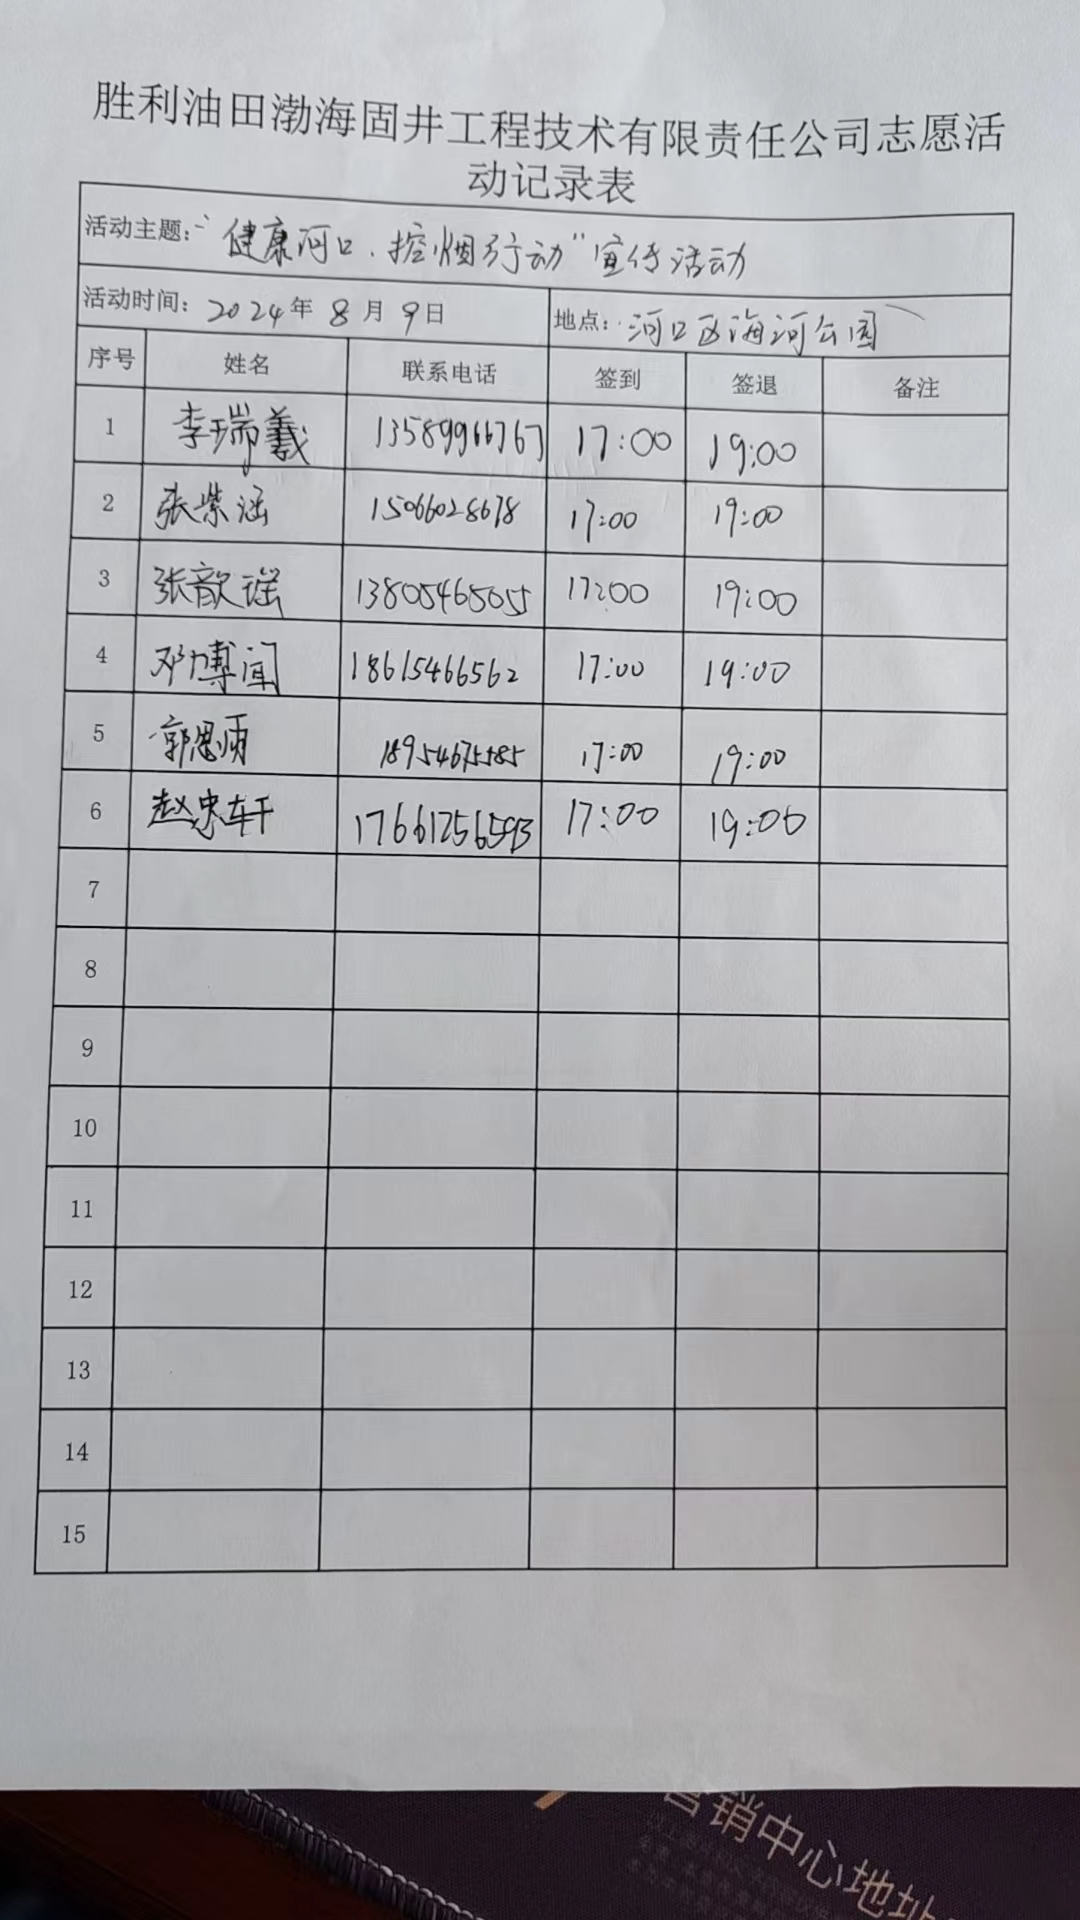 胜利油田渤海固井工程技术有限责任公司志愿活
动记录表
活动主题："健康河口、控烟行动"宣传活动
活动时间：2024年8月9日 地点：河口区海河公园
序号 姓名 联系电话 签到 签退 备注
1 李瑞羲 13589966767 17:00 19:00
2 张紫涵 15066028678 17:00 19:00
3 张歆瑶 13805465055 17:00 19:00
4 邓博闻 18615466562 17:00 19:00
5 郭思雨 18954675585 17:00 19:00
6 赵忠轩 17661256593 17:00 19:00
7
8
9
10
11
12
13
14
15
营销中心地址